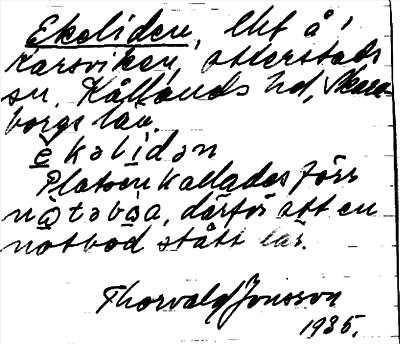 Ekeliden, lht å
Karsviken, Otterstads
sn. Kållands hd, Skara-
borgs län.
ekəlidən
Platsen kallades förr
nòtəbòa, därför att en
notbod stått där.
Thorvald Jonsson
1935.